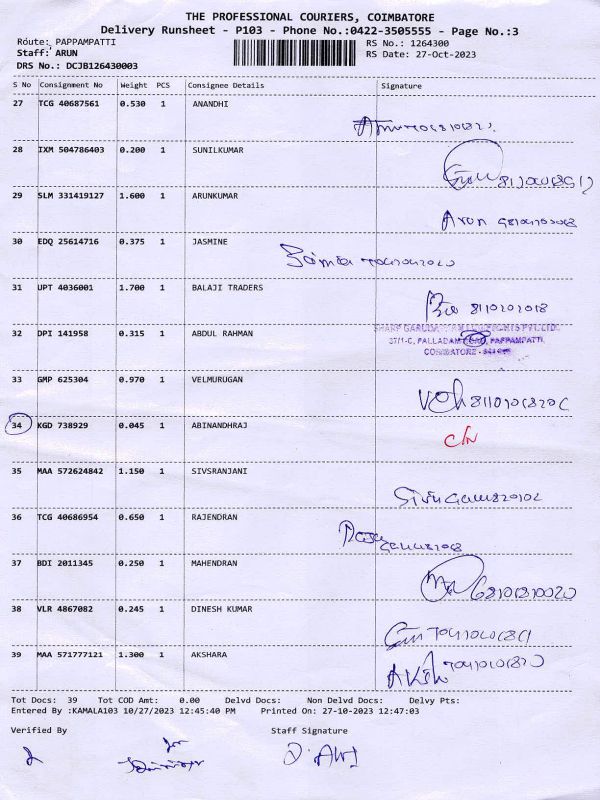 THE PROFESSIONAL COURIERS, COIMBATORE
Delivery Runsheet - P103 - Phone No.:0422-3505555 - Page No.:3
Route: PAPPAMPATTI RS No.: 1264300
Staff: ARUN RS Date: 27-Oct-2023
DRS No.: DCJB126430003
S No Consignment No Weight PCS Consignee Details Signature
27 TCG 40687561 0.530 1 ANANDHI
28 IXM 504786403 0.200 1 SUNILKUMAR
29 SLM 331419127 1.600 1 ARUNKUMAR
Arun
30 EDQ 25614716 0.375 1 JASMINE
31 UPT 4036001 1.700 1 BALAJI TRADERS
32 DPI 141958 0.315 1 ABDUL RAHMAN
37/1-C, PALLADAM ROAD, PAPPAMPATTI,
COIMBATORE -
33 GMP 625304 0.970 1 VELMURUGAN
34 KGD 738929 0.045 1 ABINANDHRAJ
35 MAA 572624842 1.150 1 SIVSRANJANI
36 TCG 40686954 0.650 1 RAJENDRAN
37 BDI 2011345 0.250 1 MAHENDRAN
38 VLR 4867082 0.245 1 DINESH KUMAR
39 MAA 571777121 1.300 1 AKSHARA
Tot Docs: 39 Tot COD Amt: 0.00 Delvd Docs: Non Delvd Docs: Delvy Pts:
Entered By :KAMALA103 10/27/2023 12:45:40 PM Printed On: 27-10-2023 12:47:03
Verified By Staff Signature